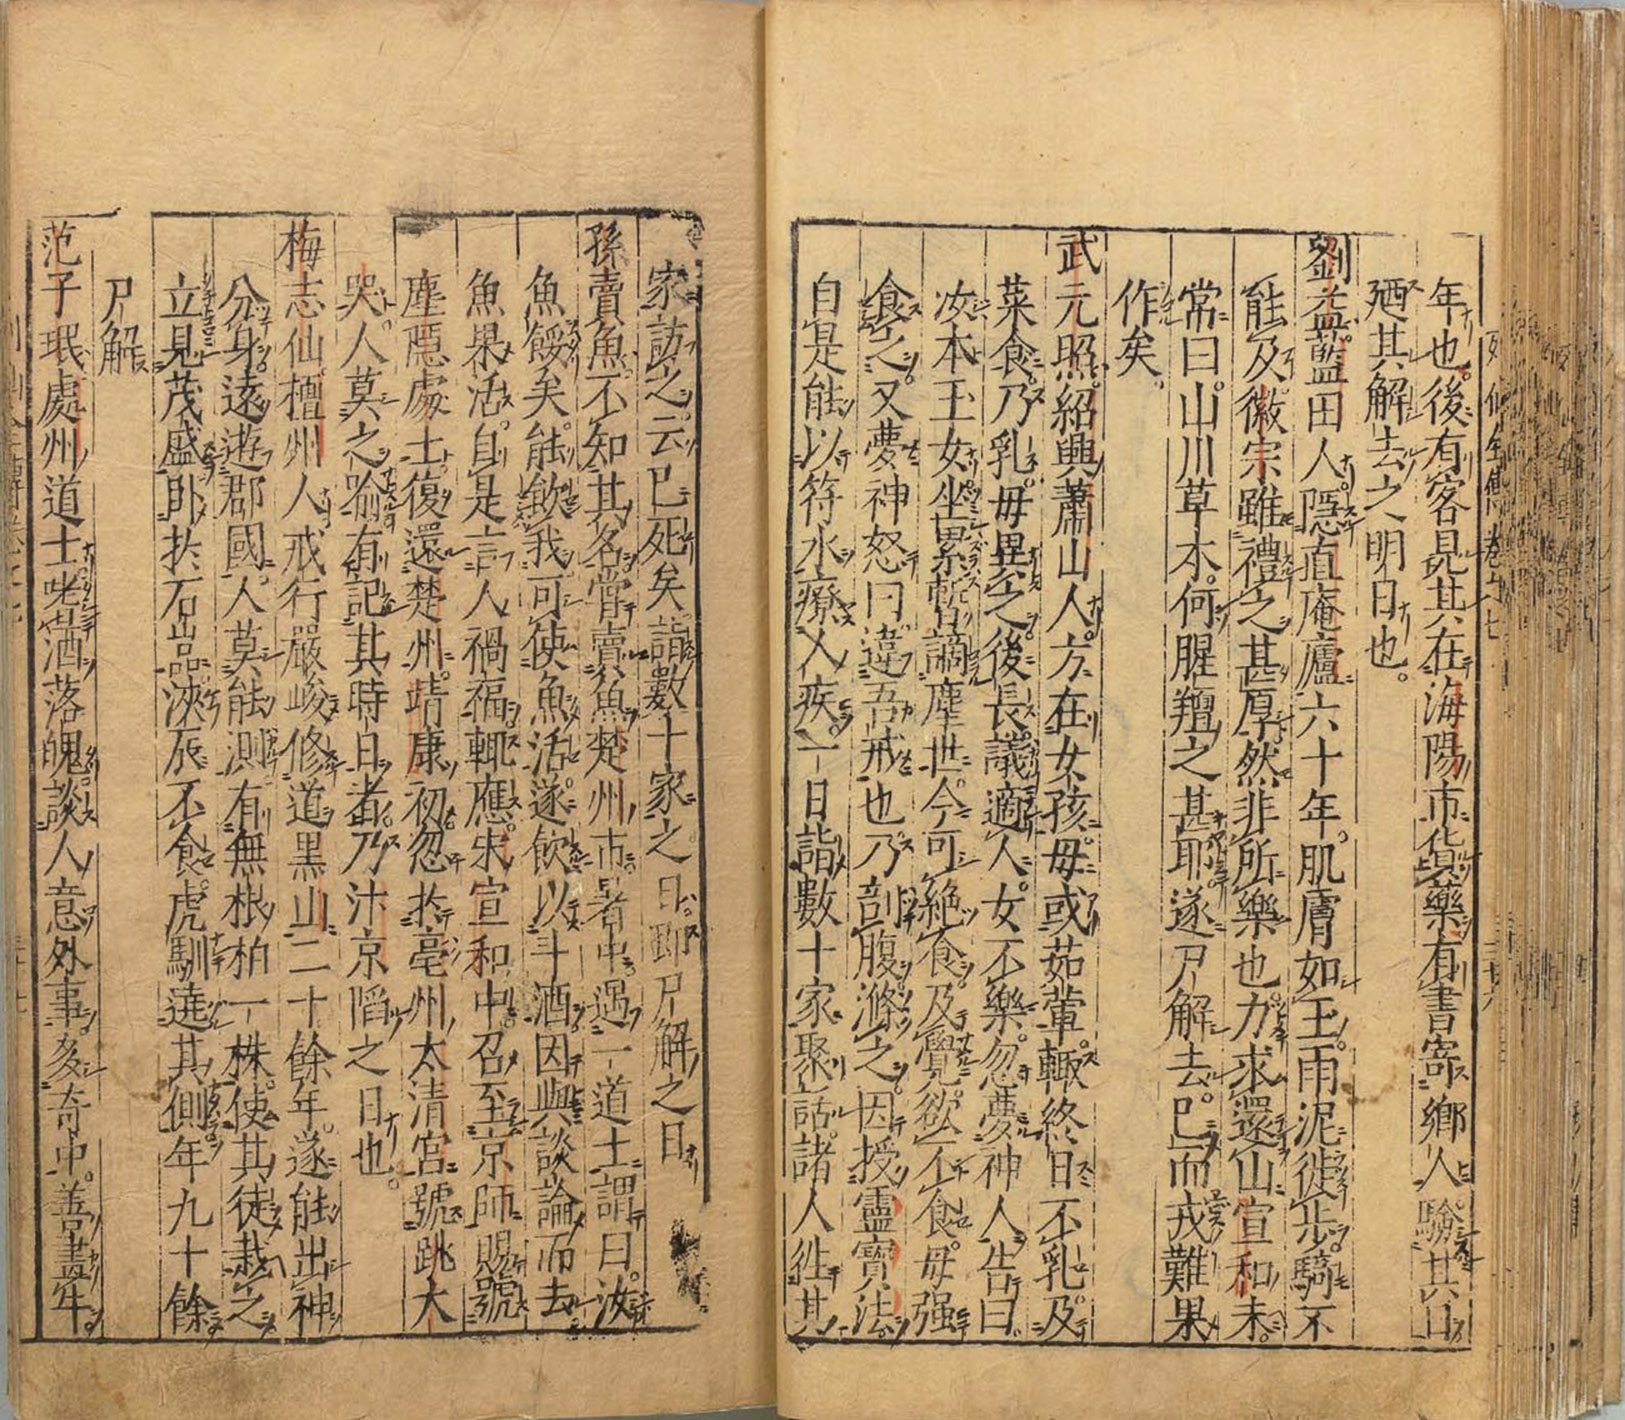 年也後有客見其在海陽市貨藥有書寄鄉人驗其出
廼其解去之明日也
劉益藍田人隱直庵廬六十年肌膚如玉雨泥徒步騎不
能及徽宗雖禮之甚厚然非所樂也力求還山宣和末
常曰山川草木何腥羶之甚耶遂尸解去已而戎難果
作矣
武元照紹興蕭山人方在女孩母或茹葷輒終日不乳及
菜食乃乳母異之後長議適人女不樂忽夢神人告曰
汝本玉女坐累暫謫塵世今可絶食及覺欲不食母强
食之又夢神怒曰違吾戒也乃剖腹滌之因授靈寶法
自是能以符水療人疾一日詣數十家聚話諸人徃其
家訪之云已死矣詣數十家之日即尸解之日
孫賣魚不知其名甞賣魚楚州市暑中遇一道士謂曰汝
魚餒矣能飮我可使魚活遂飲以斗酒因與談論而去
魚果活自是言人禍福輒應宋宣和中召至京師賜號
塵隱處士復還楚州靖康初忽扵亳州太清宮號跳大
哭人莫之喻有記其時日者乃汴京陷之日也
梅志仙檀州人戒行嚴峻修道黑山二十餘年遂能出神
分身遠遊郡國人莫能測有無根柏一株使其徒栽之
立見茂盛卧扵石品浹辰不食虎馴遶其側年九十餘
尸解
范子珉處州道士嗜酒落魄談人意外事多奇中善畫牛
列仙全傳卷之七